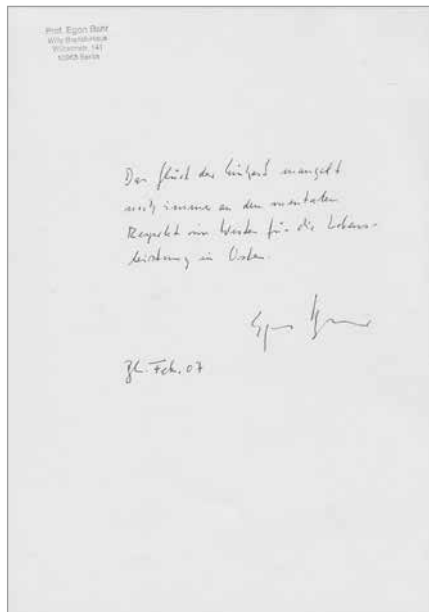 Prof. Egon Bahr
Willy-Brandt-Haus
Wilhelmstr. 141
10963 Berlin
Das Glück der Einheit mangelt
noch immer an dem mentalen
Respekt im Westen für die Lebens-
leistung im Osten.
Egon Bahr
Feb. 07